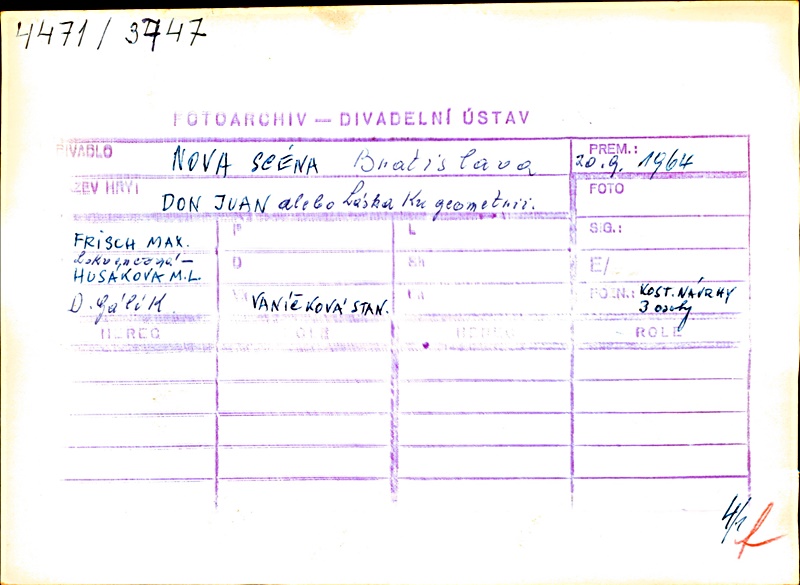 4471/3747
FOTOARCHIV — DIVADELNÍ ÚSTAV
DIVADLO NOVA SCÉNA Bratislava
PREM.: 20.9. 1964
ZEV HRY: DON JUAN alebo Láska Ku geometrii.
FOTO
FRISCH MAX.
P
L
SIG.:
HUSAKOVA M.L.
D
Sh
E/
D. Gálik.
VANÍČKOVÁ STAN.
POZN.: KOST. NÁVRHY
3 osoby
HEREC
HEREC
ROLE
4/1